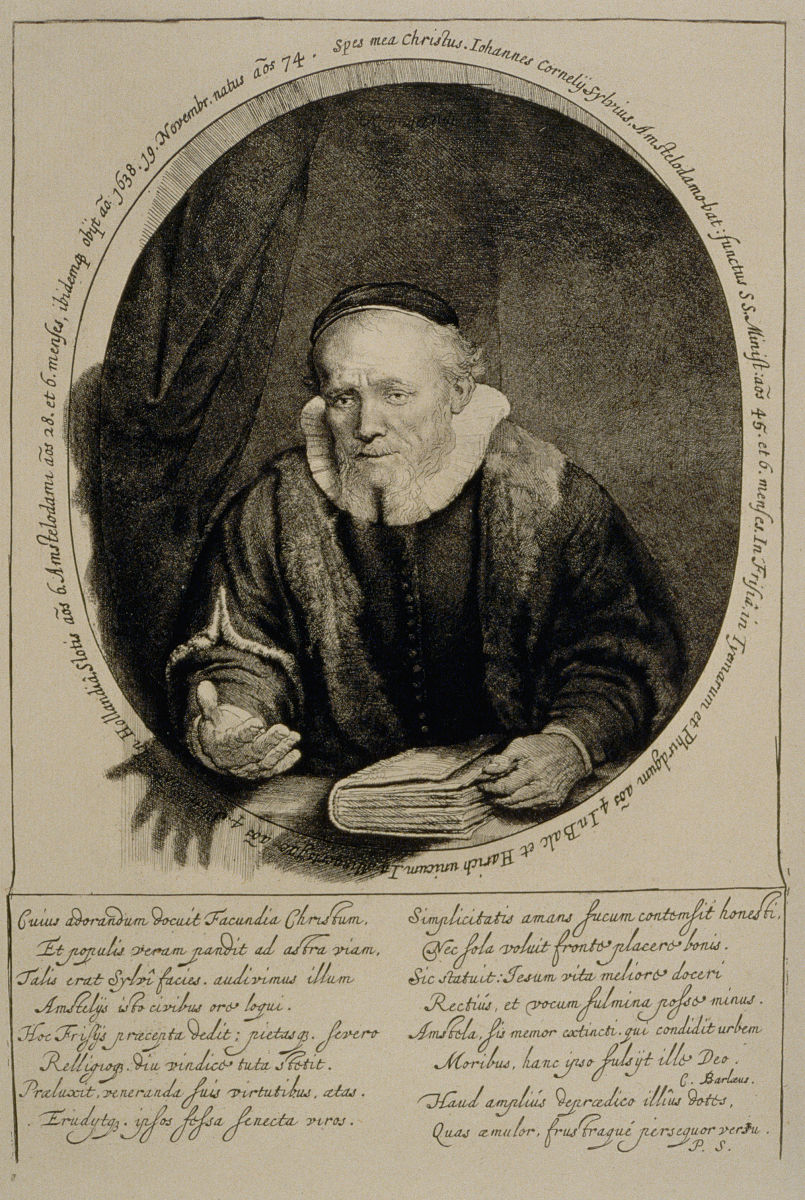 Spes mea Christus. Iohannes Cornelÿ Sylvius, Amstelodamobat: functus S.S. Minist: aõs 45. et 6. menses. In Frisiâ, in Tyemarum et Phirdgum aõs 4. In Balc et Harich unicum. In
aõs 4.
In Hollandiâ, Slotis aõs 6. Amstelodami aõs 28. et 6. menses, ibidemq₃ obÿt aõ. 1638. 19. Novembr. natus aõs 74.
Cuius adorandum docuit Facundia Christum,
Et populis veram pandit ad astra viam,
Talis erat Sylvî facies. audivimus illum
Amstelÿs isto civibus ore loqui.
Hoc Frisÿs præcepta dedit; pietasq₃. severo
Relligioq₃. diu vindice tuta stetit.
Præluxit, veneranda suis virtutibus, ætas.
Erudÿtq₃. ipsos fessa senecta viros.
Simplicitatis amans fucum contemsit honesti,
Nec sola voluit fronte placere bonis.
Sic statuit: Iesum vita meliore doceri
Rectiús, et vocum fulmina posse minus.
Amstela, sis memor extincti. qui condidit urbem
Moribus, hanc ipso fulsÿt ille Deo.
C. Barlæus.
Haud ampliús deprædico illíus dotes,
Quas æmulor, frustraqué persequor versu.
P. S.